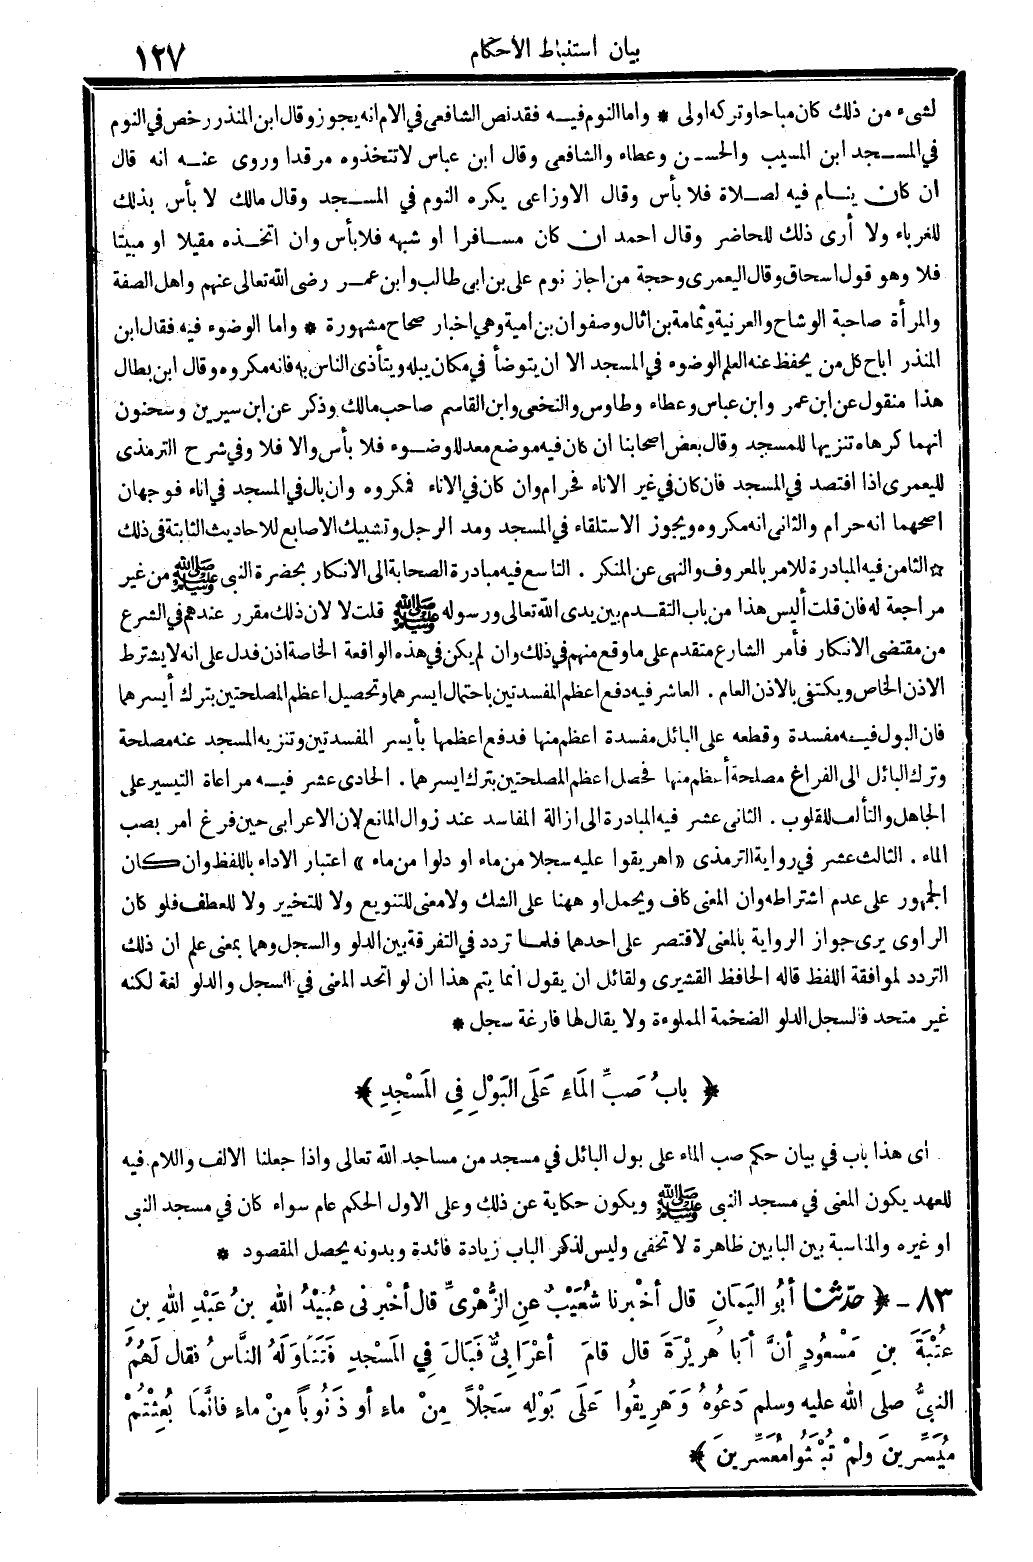 بيان استنباط الأحكام
١٢٧
لشيء من ذلك كان مباحا وتركه اولى * واما النوم فيـه فقد نص الشافعى في الام انه يجوز وقال ابن المنذر رخص في النوم
في المسـجد ابن المسيب والحسـن وعطاء والشافعى وقال ابن عباس لا تتخذوه مرقدا وروى عنـه انه قال
ان كان ينـام فيه لصـلاة فلا بأس وقال الاوزاعى يكره النوم في المسـجد وقال مالك لا بأس بذلك
للغرباء ولا أرى ذلك للحاضر وقال احمد ان كان مسـافرا او شبهه فلا بأس وان اتخـذه مقيلا او مبيتا
فلا وهو قول اسحاق وقال اليعمرى وحجة من اجاز نوم على بن ابى طالب وابن عمـر رضى الله تعالى عنهم واهل الصفة
والمرأة صاحبة الوشاح والعرنية وثمامة بن اثال وصفوان بن امية وهي اخبار صحاح مشهورة * واما الوضوء فيه فقال ابن
المنذر اباح كل من يحفظ عنه العلم الوضوء في المسجد الا ان يتوضأ في مكان يبله ويتأذى الناس به فانه مكروه وقال ابن بطال
هذا منقول عن ابن عمر وابن عباس وعطاء وطاوس والنخعى وابن القاسم صاحب مالك وذكر عن ابن سيرين وسحنون
انهما كرهاه تنزيها للمسجد وقال بعض اصحابنا ان كان فيه موضع معد للوضـوء فلا بأس والا فلا وفي شرح الترمذى
لليعمرى اذا افتصد في المسجد فان كان في غير الاناء فحرام وان كان في الاناء فمكروه وان بال في المسجد في اناء فوجهان
اصحهما انه حرام والثانى انه مكروه ويجوز الاستلقاء في المسجد ومد الرجل وتشبيك الاصابع للاحاديث الثابتة فى ذلك
☆ الثامن فيه المبادرة للامر بالمعروف والنهى عن المنكر . التاسع فيه مبادرة الصحابة الى الانكار بحضرة النبى ﷺ من غير
مراجعة له فان قلت أليس هذا من باب التقـدم بين يدى الله تعالى ورسوله ﷺ قلت لا لان ذلك مقرر عندهم في الشرع
من مقتضى الانكار فأمر الشارع متقدم على ما وقع منهم في ذلك وان لم يكن في هذه الواقعة الخاصة اذن فدل على انه لا يشترط
الاذن الخاص ويكتفى بالاذن العام . العاشر فيه دفع اعظم المفسدتين باحتمال ايسرهما وتحصيل اعظم المصلحتين بترك أيسرهما
فان البول فيـه مفسدة وقطعه على البائل مفسدة اعظم منها فدفع اعظمها بأيسر المفسدتين وتنزيه المسجد عنه مصلحة
وترك البائل الى الفراغ مصلحة أعظم منها فحصل اعظم المصلحتين بترك ايسرهما . الحادى عشر فيـه مراعاة التيسير على
الجاهل والتألف للقلوب . الثانى عشر فيه المبادرة الى ازالة المفاسد عند زوال المانع لان الاعرابى حين فرغ امر بصب
الماء . الثالث عشر في رواية الترمذى «اهريقوا عليه سجلا من ماء او دلوا من ماء» اعتبار الاداء باللفظ وان كان
الجمهور على عدم اشتراطه وان المعنى كاف ويحمل او ههنا على الشك ولا معنى للتنويع ولا للتخيير ولا للعطف فلو كان
الراوى يرى جواز الرواية بالمعنى لاقتصر على احدهما فلمـا تردد في التفرقة بين الدلو والسجل وهما بمعنى علم ان ذلك
التردد لموافقة اللفظ قاله الحافظ القشيرى ولقائل ان يقول انما يتم هذا ان لو اتحد المعنى في السجل والدلو لغة لكنه
غير متحد فالسجل الدلو الضخمة المملوءة ولا يقال لها فارغة سجل *
﴿ بابُ صَبِّ المَاءِ عَلَى البَوْلِ فِي المَسْجِدِ ﴾
. اى هذا باب في بيان حكم صب الماء على بول البائل في مسجد من مساجد الله تعالى واذا جعلنا الالف واللام فيه
للعهد يكون المعنى في مسجد النبى ﷺ ويكون حكاية عن ذلك وعلى الاول الحكم عام سواء كان في مسجد النبى
او غيره والمناسبة بين البابين ظاهرة لا تخفى وليس لذكر الباب زيادة فائدة وبدونه يحصل المقصود *
٨٣ - ﴿ حدّثنا أبُو اليَمَانِ قال أخْبرنا شُعَيْبٌ عنِ الزُّهْرىِّ قال أخْبرنى عُبَيْدُ اللهِ بنُ عَبْدِ اللهِ بنِ
عُتْبَةَ بنِ مَسْعُودٍ أنَّ أبَا هُرَيْرَةَ قال قامَ أعْرَابىٌّ فَبَالَ فِي المَسْجِدِ فَتَنَاوَلَهُ النَّاسُ فقال لَهُمُ
النبىُّ صلى الله عليه وسلم دَعُوُهُ وَهَرِيقُوا عَلَى بَوْلِهِ سَجْلاً مِنْ ماءٍ أو ذَنُوباً مِنْ ماءٍ فانَّمَا بُعِثْتُمْ
مُيَسِّرِينَ ولَمْ تُبْعَثُوا مُعَسِّرِينَ ﴾